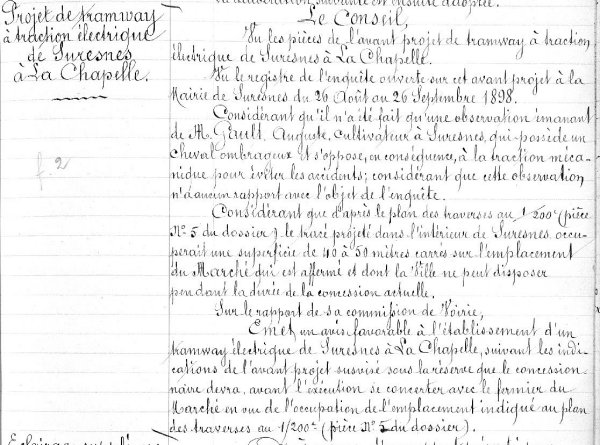 Projet de tramway
à traction électrique
de Suresnes
à La Chapelle.
f. 2
Le Conseil,
Vu les pièces de l'avant projet de tramway à traction
électrique de Suresnes à La Chapelle.
Vu le registre de l'enquête ouverte sur cet avant projet à la
Mairie de Suresnes du 26 Août au 26 Septembre 1898.
Considérant qu'il n'a été fait qu'une observation émanant
de M. Gault, Auguste, cultivateur à Suresnes, qui possède un
cheval ombrageux et s'oppose, en conséquence, à la traction méca-
nique pour éviter les accidents; considérant que cette observation
n'a aucun rapport avec l'objet de l'enquête.
Considérant que d'après le plan des traverses au 1/200e (pièce
No 5 du dossier) le tracé projeté dans l'intérieur de Suresnes occu-
perait une superficie de 40 à 50 mètres carrés sur l'emplacement
du Marché qui est affermé et dont la Ville ne peut disposer
pendant la durée de la concession actuelle.
Sur le rapport de sa commission de Voirie,
Emet un avis favorable à l'établissement d'un
tramway électrique de Suresnes à La Chapelle, suivant les indi-
cations de l'avant projet susvisé sous la réserve que le concession-
naire devra, avant l'exécution se concerter avec le fermier du
Marché en vue de l'occupation de l'emplacement indiqué au plan
des traverses au 1/200e (pièce No 5 du dossier).